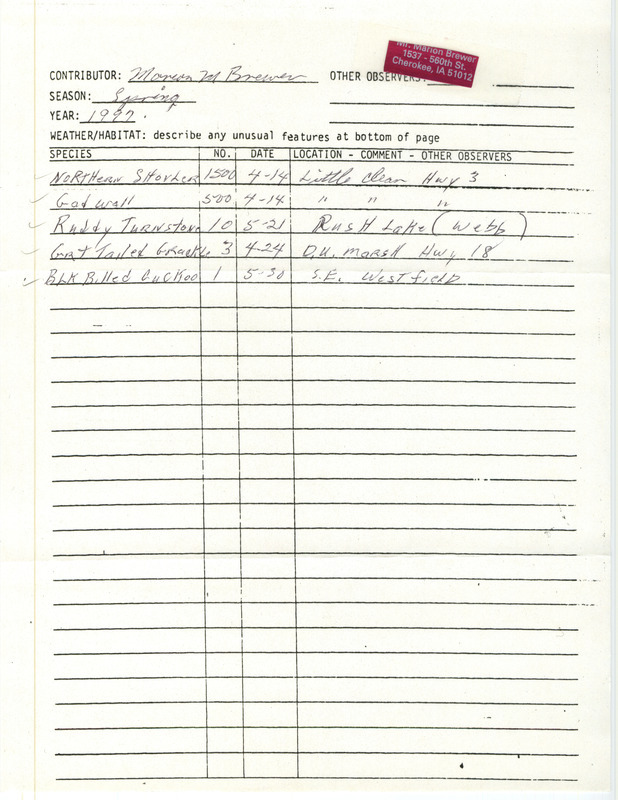 Mr. Marion Brewer
1537 - 560th St.
Cherokee, IA 51012
CONTRIBUTOR: Marion M Brewer OTHER OBSERVERS:
SEASON: Spring
YEAR: 1997
WEATHER/HABITAT: describe any unusual features at bottom of page
SPECIES NO. DATE LOCATION - COMMENT - OTHER OBSERVERS
✓ Northern Shovler 1500 4-14 Little Clean Hwy 3
✓ Gadwall 500 4-14 " " "
✓ Ruddy Turnstone 10 5-21 Rush Lake (Webb)
✓ Grt Tailed Grackle 3 4-24 D.U. Marsh Hwy 18
✓ Blk Billed Cuckoo 1 5-30 S.E. Westfield